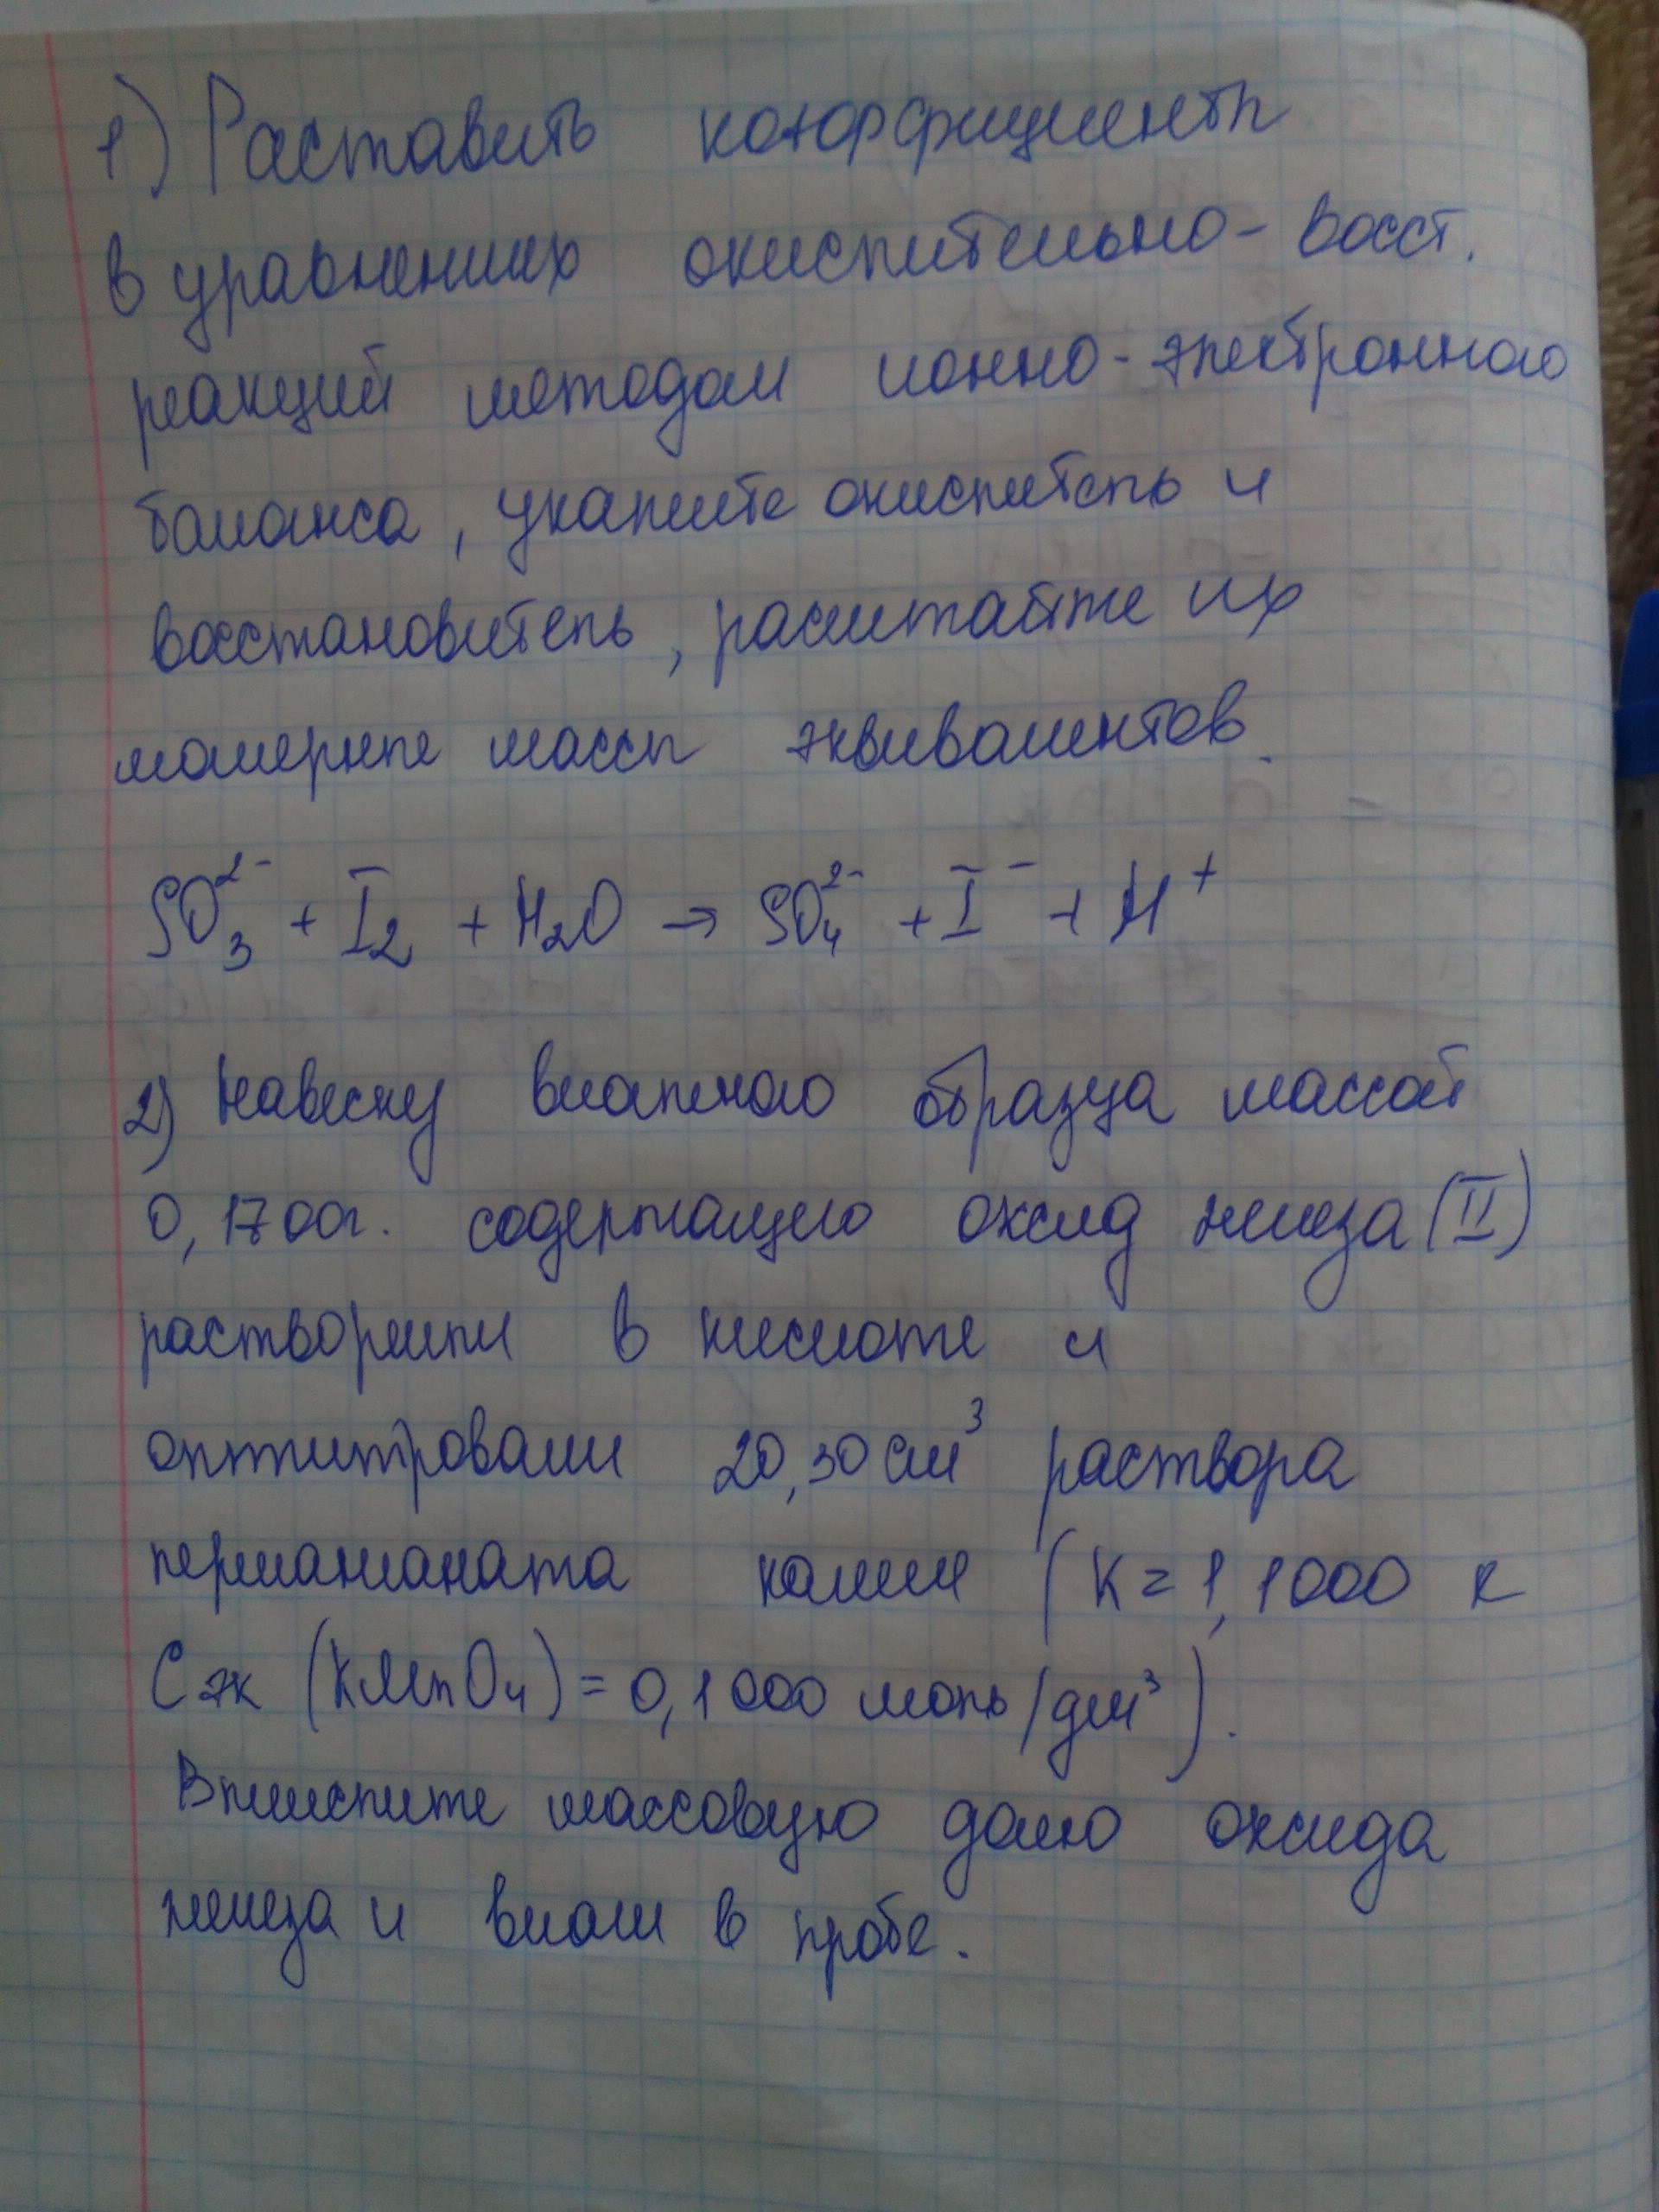 1) Раставить коэффициенты
в уравнениях окислительно-восст.
реакций методом ионно-электронного
баланса, укажите окислитель и
восстановитель, расчитайте их
молярные массы эквивалентов.
SO₃²⁻ + I₂ + H₂O → SO₄²⁻ + I⁻ + H⁺
2) Навеску влажного образца массой
0,1700г. содержащего оксид железа (II)
растворили в кислоте и
оттитровали 20,30 см³ раствора
перманганата калия (K = 1,1000 к
Сэк (KMnO₄) = 0,1000 моль/дм³).
Вычислите массовую долю оксида
железа и влаги в пробе.